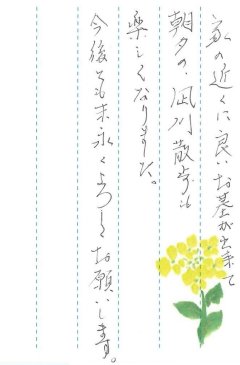 家の近くに良いお墓が出来て
朝夕の、夙川散歩も
楽しくなりました。
今後とも末永くよろしくお願いします。